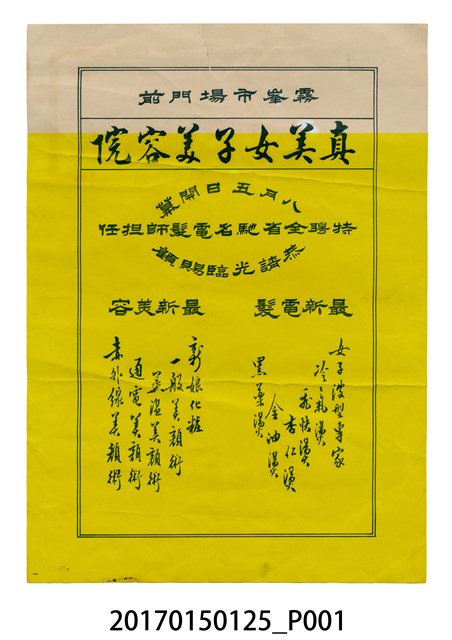 霧峯市場門前
真美女子美容院
八月五日開幕
特聘全省馳名電髮師担任
恭請光臨賜顧
最新電髮
女子波型專家
冷氣燙
杏仁燙
金油燙
黑藥燙
最新美容
新娘化粧
一般美顏術
蒸溫美顏術
通電美顏術
赤外線美顏術
20170150125_P001